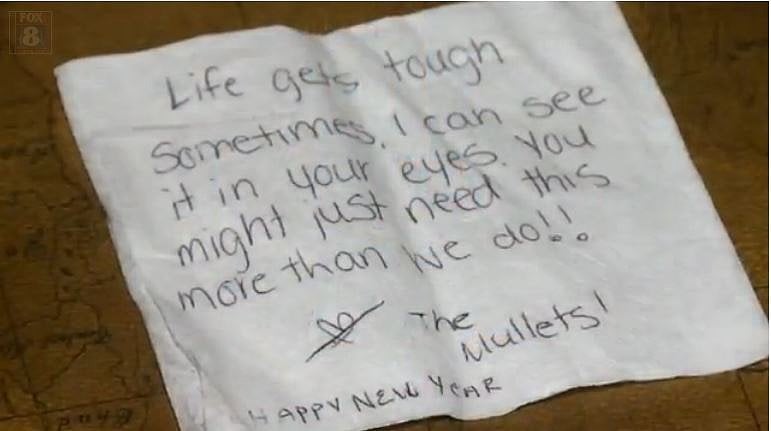 FOX
8
Life gets tough
Sometimes. I can see
it in your eyes. You
might just need this
more than we do!!
The
Mullets!
HAPPY NEW YEAR